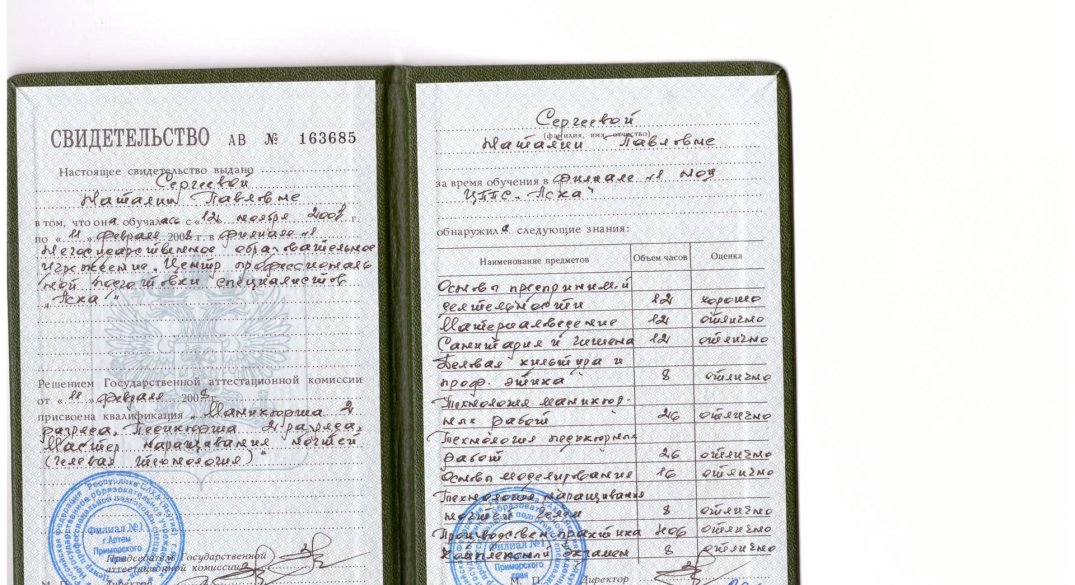 СВИДЕТЕЛЬСТВО АВ № 163685
Настоящее свидетельство выдано
Сергеевой
Наталии Павловне
в том, что она обучалась с «12» ноября 2007 г.
по «11» февраля 2008 г. в филиале №1
Негосударственное образовательное
учреждение „Центр профессиональ
ной подготовки специалистов
„Аска"
Решением Государственной аттестационной комиссии
от «11» февраля 2008
присвоена квалификация „Маникюрша 2
разряда, Педикюрша 2 разряда,
Мастер наращивания ногтей
(гелевая технология)"
Филиал №1
г.Артем
Приморского
края
Председатель Государственной
аттестационной комиссии
Директор
Сергеевой
(фамилия, имя, отчество)
Наталии Павловне
за время обучения в филиале №1 НОУ
ЦППС „Аска"
обнаружила следующие знания:
Наименование предметов Объем часов Оценка
Основы предприним-й
деятельности 12 хорошо
Материаловедение 12 отлично
Санитария и гигиена 12 отлично
Деловая культура и
проф. этика 8 отлично
Технология маникюр-
ных работ 26 отлично
Технология педикюрных
работ 26 отлично
Основы моделирования 16 отлично
Технология наращивания
ногтей гелем 8 отлично
Производствен. практика отлично
Комплексный экзамен 8 отлично
Филиал №1
М. П. Директор